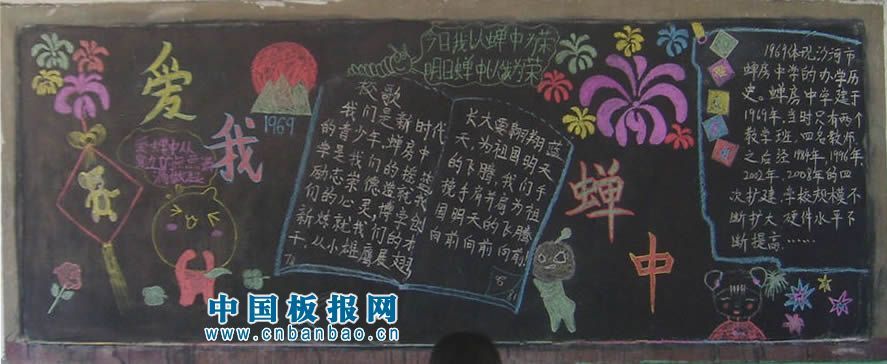 爱
我
蝉
中
1969
今日我以蝉中为荣
明日蝉中以我为荣
爱蝉中从
校歌
我们是新时代
的青少年,蝉房中
学是我们的
干,从小雄鹰展翅,
长大要翱翔蓝
天,为祖国明天
的飞腾,我们手
挽手,肩并肩,为祖
国明天的飞腾
向前向前向前!
1969体现沙河市
蝉房中学的办学历
史。蝉房中学建于
1969年,当时只有两个
教学班,四名教师,
之后经1984年,1996年,
2002年,2008年的四
次扩建,学校规模不
断扩大,硬件水平不
断提高……
中国板报网
www.cnbanbao.cn